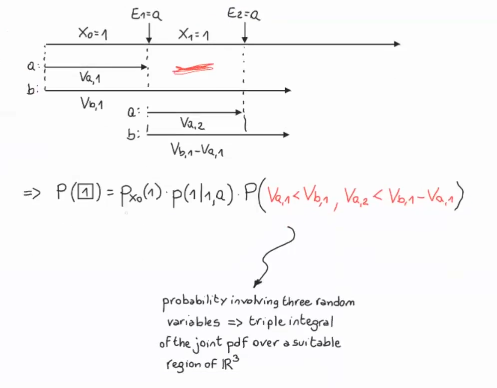 E₁=a E₂=a
X₀=1 X₁=1
a:
V_{a,1}
b:
V_{b,1}
a:
V_{a,2}
b:
V_{b,1}-V_{a,1}
=> P(1) = p_{X₀}(1) · p(1|1,a) · P(V_{a,1} < V_{b,1} , V_{a,2} < V_{b,1} - V_{a,1})
probability involving three random
variables => triple integral
of the joint pdf over a suitable
region of ℝ³